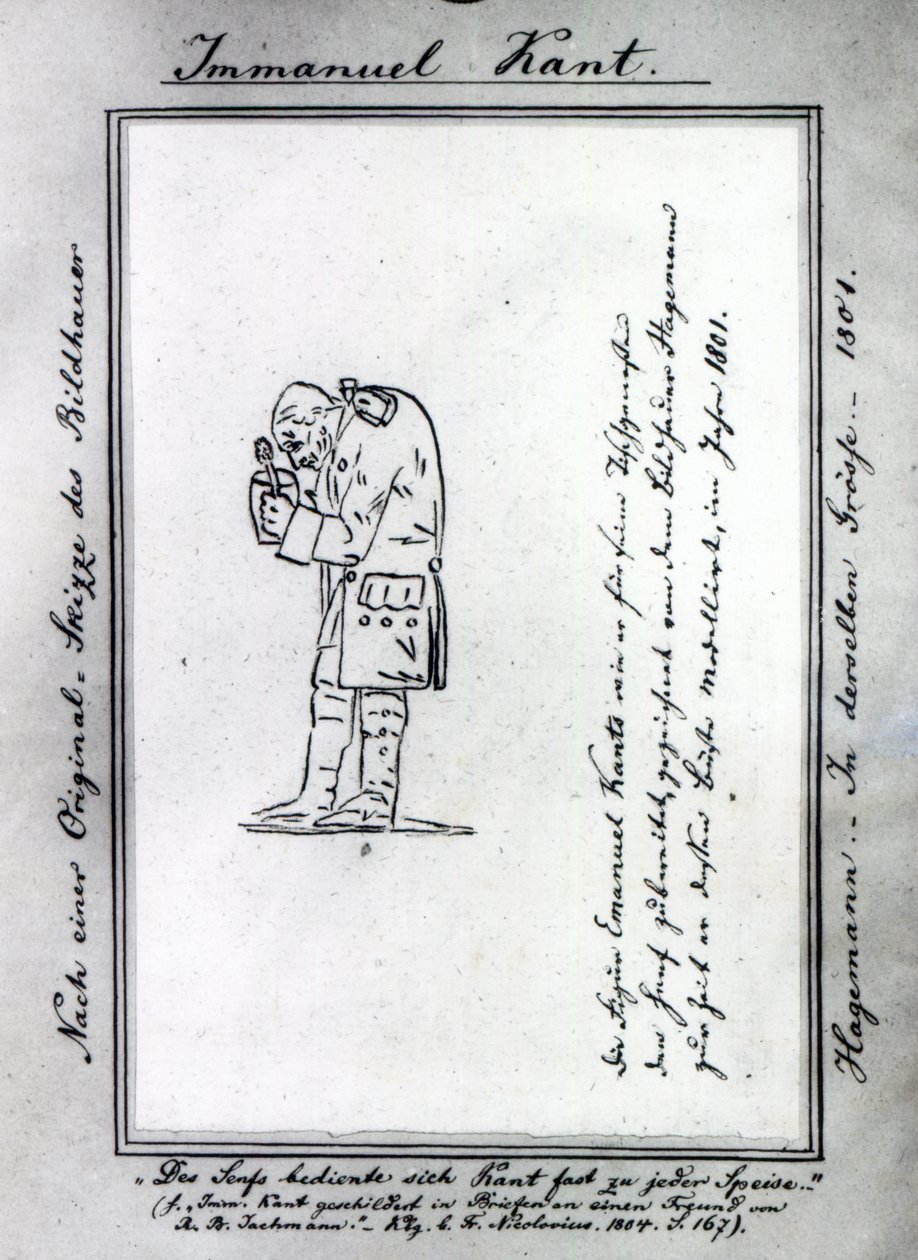 Immanuel Kant.
Nach einer Original-Skizze des Bildhauer
Die Figur Emanuel Kants wie er für seine Tischgenossen
den Senf zubereitet, gezeichnet von dem Bildhauer Hagemann
zur Zeit er dessen Büste modellirt, im Jahre 1801.
Hagemann.- In derselben Grösse.- 1801.
„Des Senfs bediente sich Kant fast zu jeder Speise.-"
(s. „Imm. Kant geschildert in Briefen an einen Freund von
R. B. Jachmann."- Kbg. b. Fr. Nicolovius. 1804. S. 167).